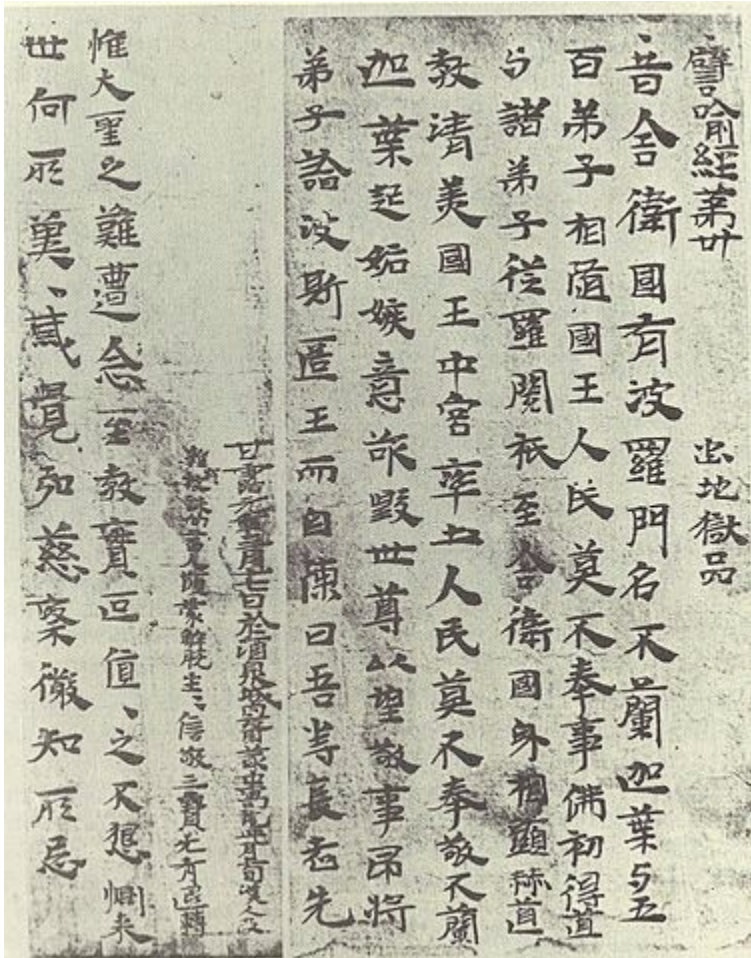 譬喻經第卅 出地獄品
昔舍衛國有波羅門名不蘭迦葉与五
百弟子相隨國王人民莫不奉事佛初得道
与諸弟子從羅閱祇至舍衛國身相顯赫道
教清美國王中宮率土人民莫不奉敬不蘭
迦葉起妬嫉意欲毀世尊以望敬事即將
弟子詣波斯匿王而自陳曰吾等長老先
甘露元年三月七日於酒泉城內齋叢中寫訖此月上旬漢人及
雜類被誠出家順蒙解脫生、信敬三寶无有退轉
惟大聖之難遭念至教寶叵值、之不懇惻来
世何所冀、或覺如慈案微知所忌